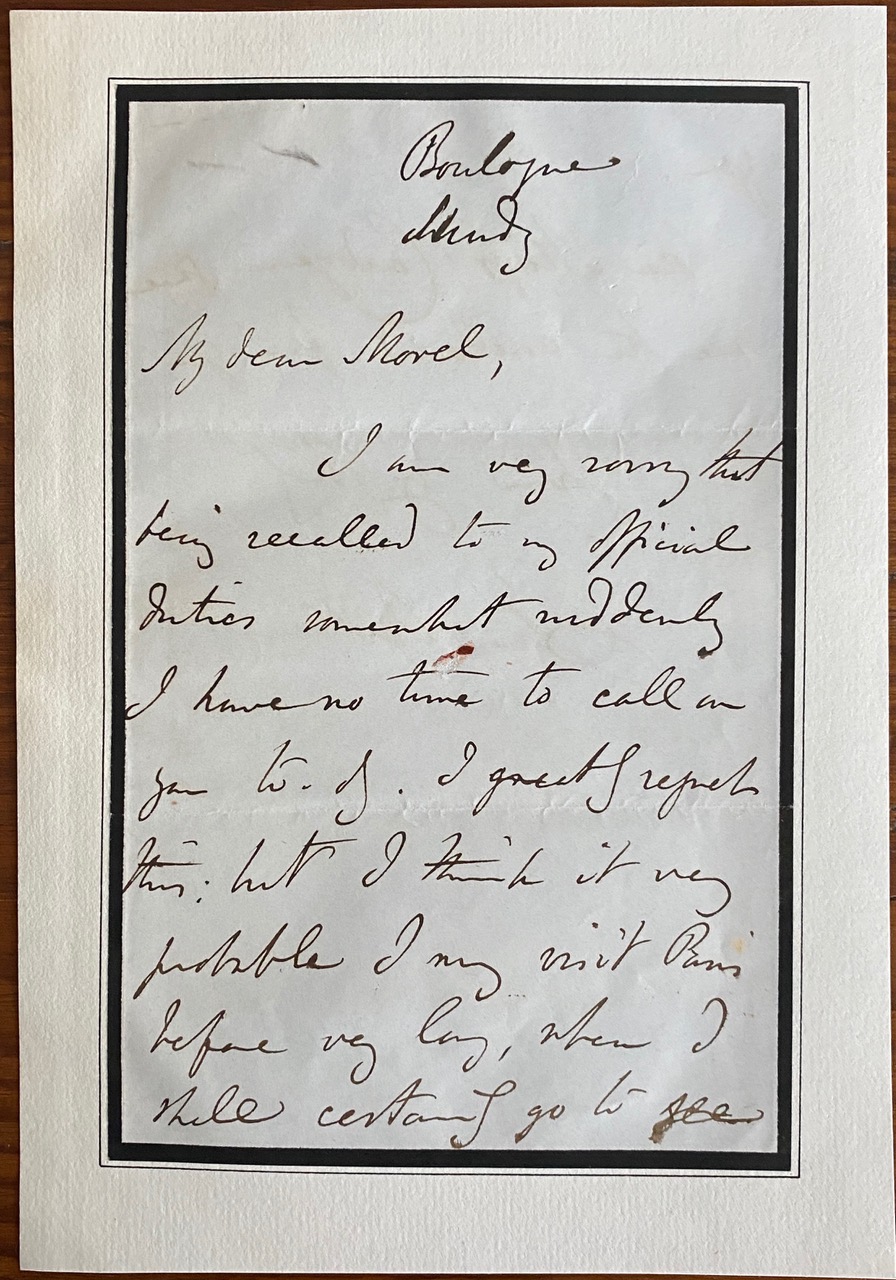 Boulogne
Mundy
My dear Morel,
I am very sorry that
being recalled to my official
duties somewhat suddenly
I have no time to call on
you to-dy. I greatly regret
this; but I think it very
probable I may visit Paris
before very long, when I
shall certainly go to see